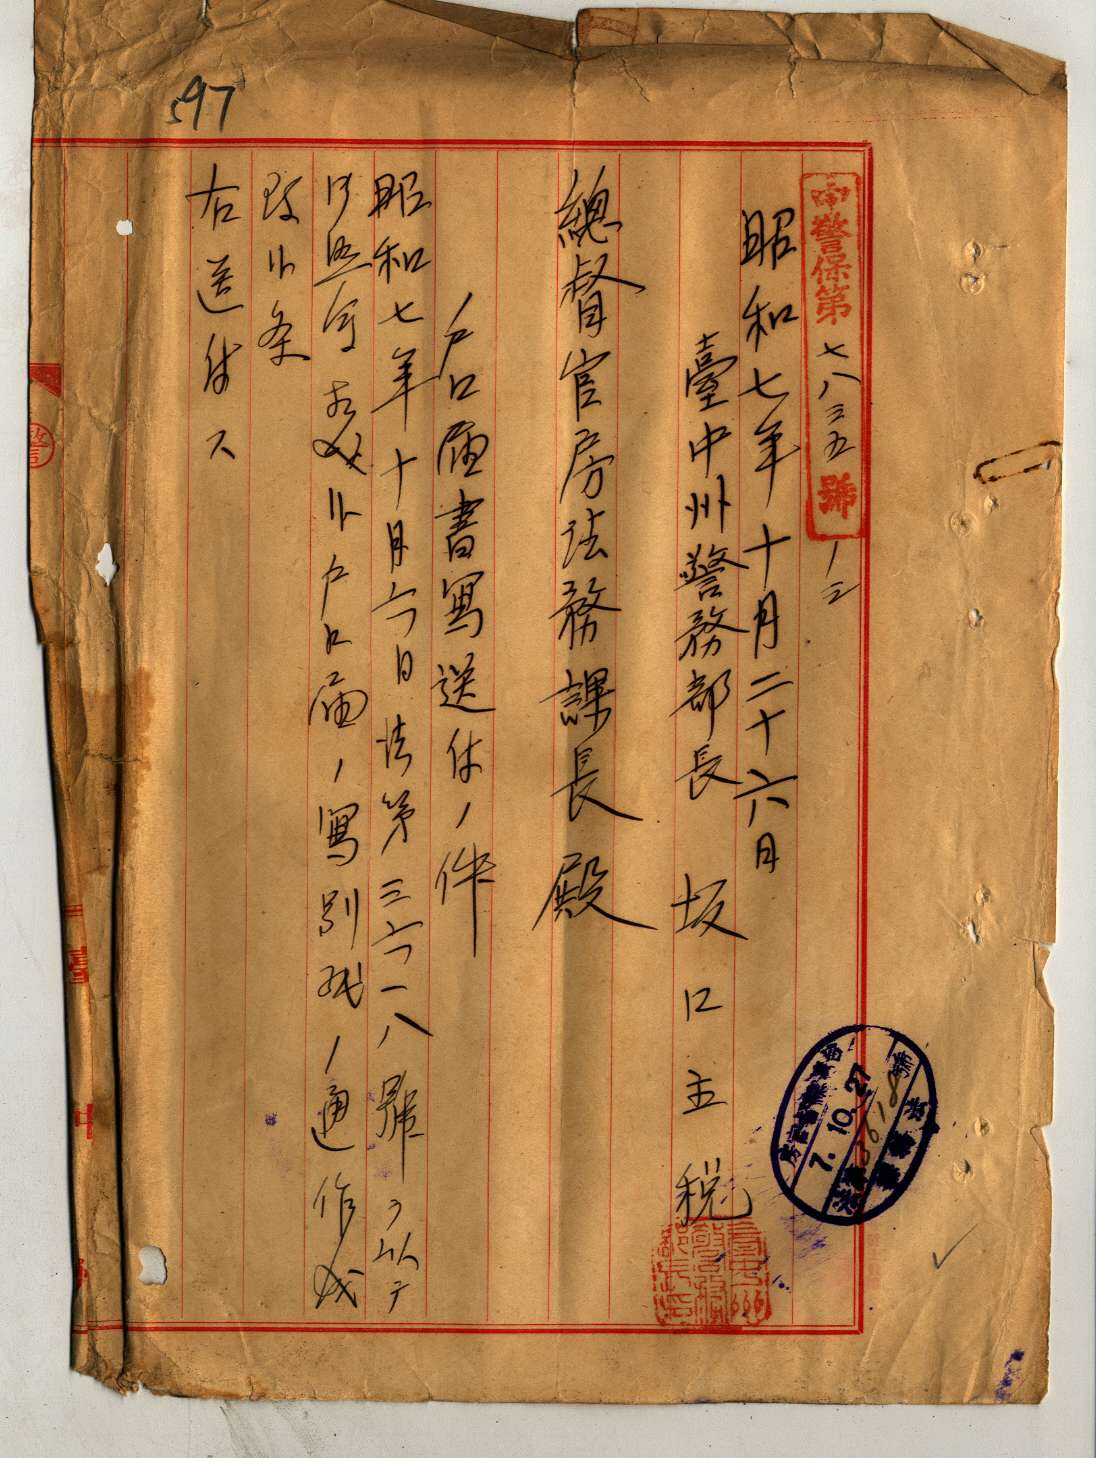 597
中警保第七八三五號ノ三
昭和七年十月二十六日
臺中州警務部長 坂口主税
總督官房法務課長殿
戶口屆書寫送付ノ件
昭和七年十月六日法第三六一八號ヲ以テ
御照會相成候戶口屆ノ寫別紙ノ通作成
致候条
右送付ス
7. 10. 27
3618